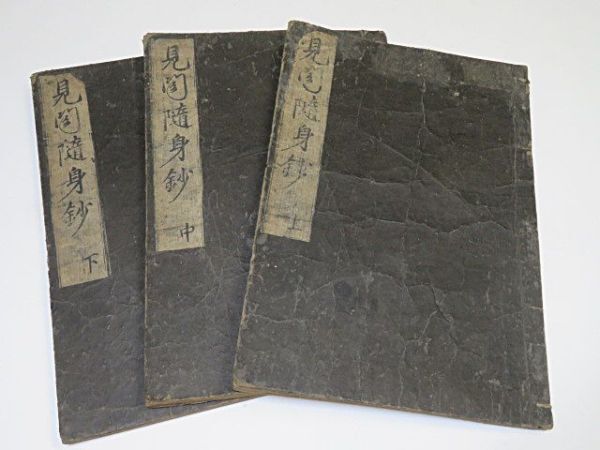 見聞随身鈔 上
見聞随身鈔 中
見聞随身鈔 下